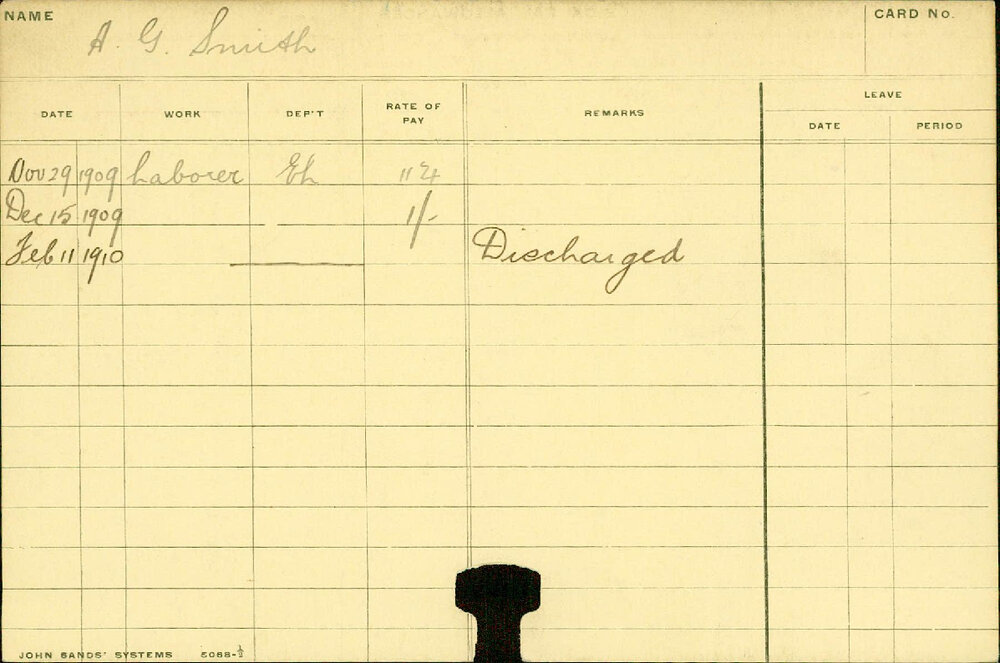 NAME A. G. Smith CARD No.
DATE WORK DEP'T RATE OF PAY REMARKS LEAVE
DATE PERIOD
Nov 29 1909 Laborer Eh
Dec 15 1909 1/-
Feb 11 1910 Discharged
JOHN SANDS' SYSTEMS 5068-½